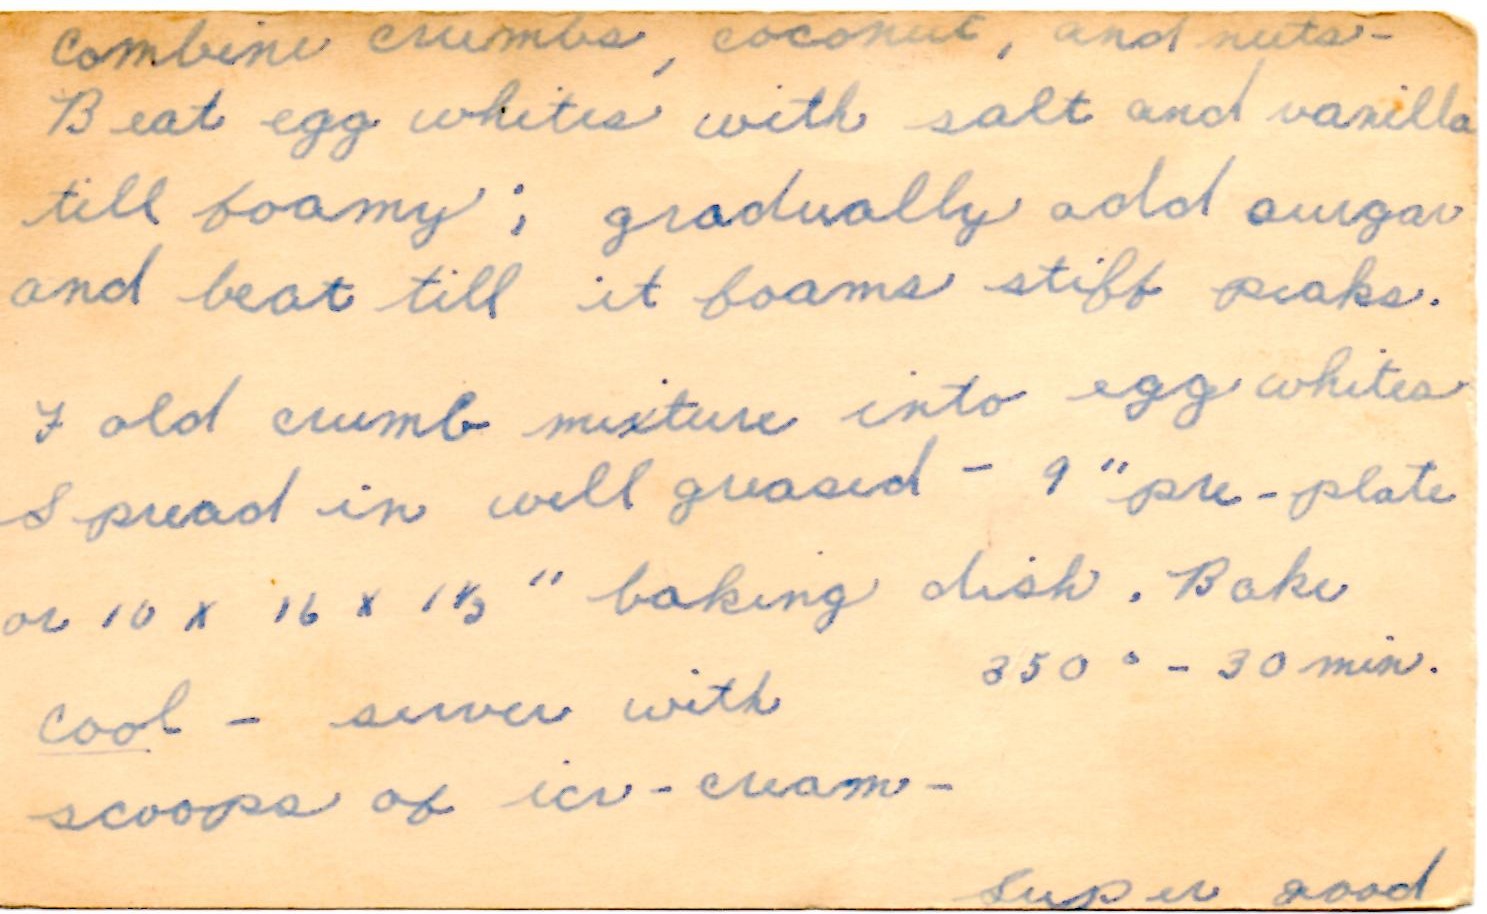 Combine crumbs, coconut, and nuts-
Beat egg whites with salt and vanilla
till foamy; gradually add surgar
and beat till it foams stiff peaks.
Fold crumb mixture into egg whites
Spread in well greased - 9" pie-plate
or 10 x 16 x 1½" baking dish. Bake
350° - 30 min.
Cool - server with
scoops of ice-cream-
Super good